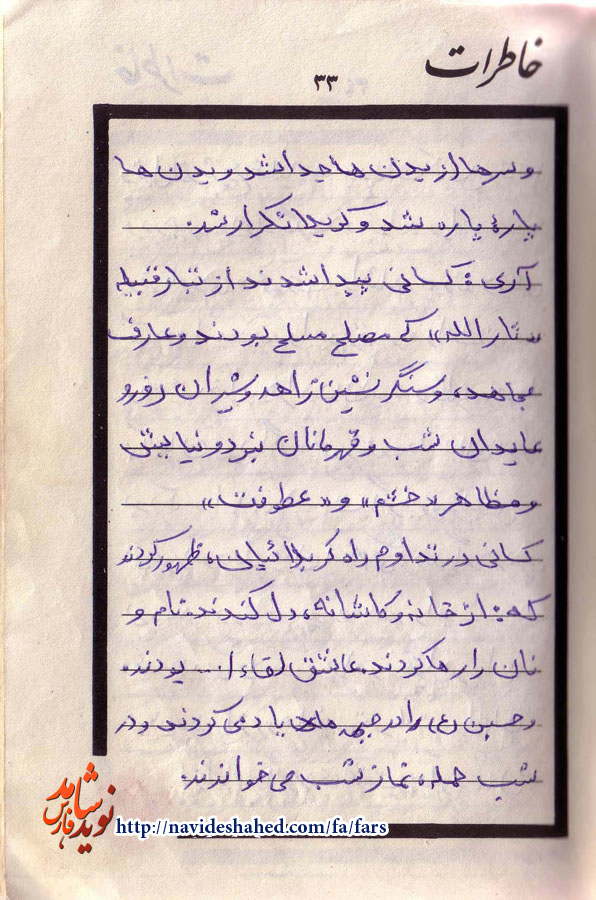 خاطرات
۳۳
و سرها از بدن ها جدا شد و بدن ها
پاره پاره شد و کربلا تکرار شد.
آری: کسانی پیدا شدند از تبار قبیله
«ثار الله» که مصلح مسلح بودند و عارف
مجاهد، و سنگر نشین زاهد و شیران روز و
عابدان شب و قهرمانان نبرد و نیایش
و مظاهر «خشم» و «عطوفت»
کسانی در تداوم راه کربلائیان، ظهور کردند
که: از خانه و کاشانه، دل کندند. نام و
نان را رها کردند. عاشق لقاء ا... بودند.
و حسین (ع) را در جبهه ها یاد می کردند و در
شب حمله، نماز شب می خواندند.
نوید شاهد
فارس
http://navideshahed.com/fa/fars